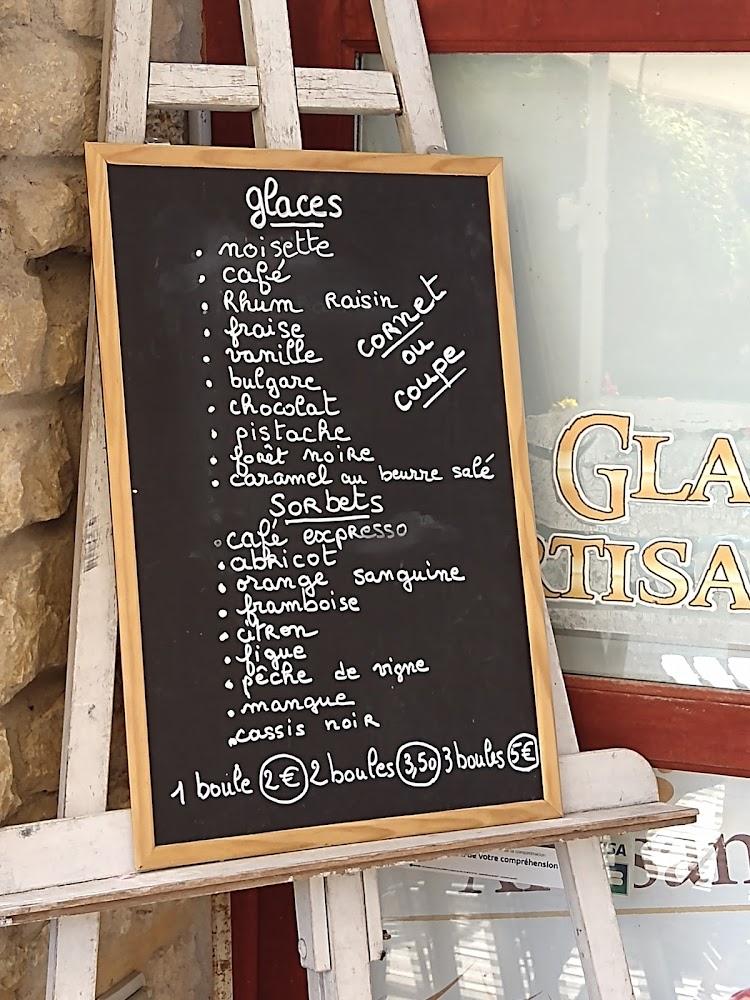 glaces
• noisette
• café
• Rhum Raisin
• fraise
• vanille
• bulgare
• chocolat
• pistache
• forêt noire
• caramel au beurre salé
cornet
ou
coupe
Sorbets
• café expresso
• abricot
• orange sanguine
• framboise
• citron
• figue
• pêche de vigne
• mangue
• cassis noir
1 boule 2€ 2 boules 3,50 3 boules 5€
GLA
RTISA
de votre compréhension
san